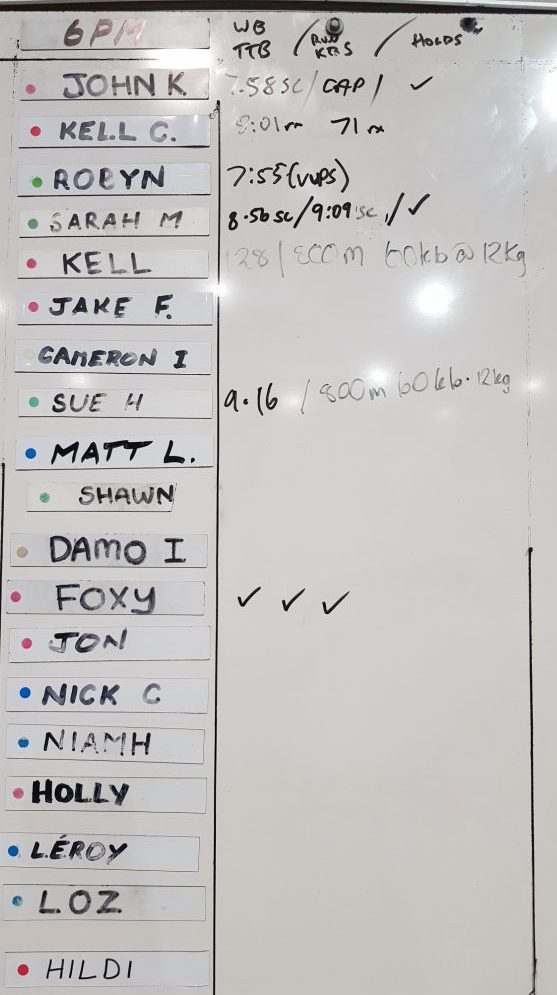 6PM WB / RUN / HOLDS
TTB KBS
JOHN K. 7.58 SC / CAP / ✓
KELL C. 8:01 rx 71 rx
ROBYN 7:55 (vups)
SARAH M 8.56 sc / 9:09 sc / ✓
KELL 128 / 800m 60kb @ 12kg
JAKE F.
CAMERON I
SUE H 9.16 / 800m 60kb. 12kg
MATT L.
SHAWN
DAMO I
FOXY ✓ ✓ ✓
JON
NICK C
NIAMH
HOLLY
LÉROY
LOZ
HILDI